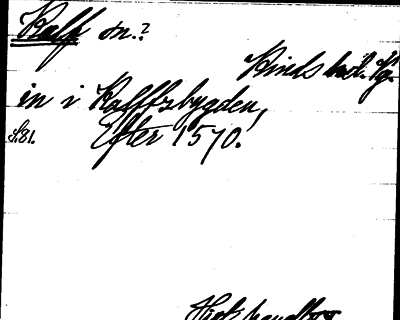 Kalf sn.?
Kinds hd. Vg.
in i Kalffsbygden,
s. 81. Efter 1570.